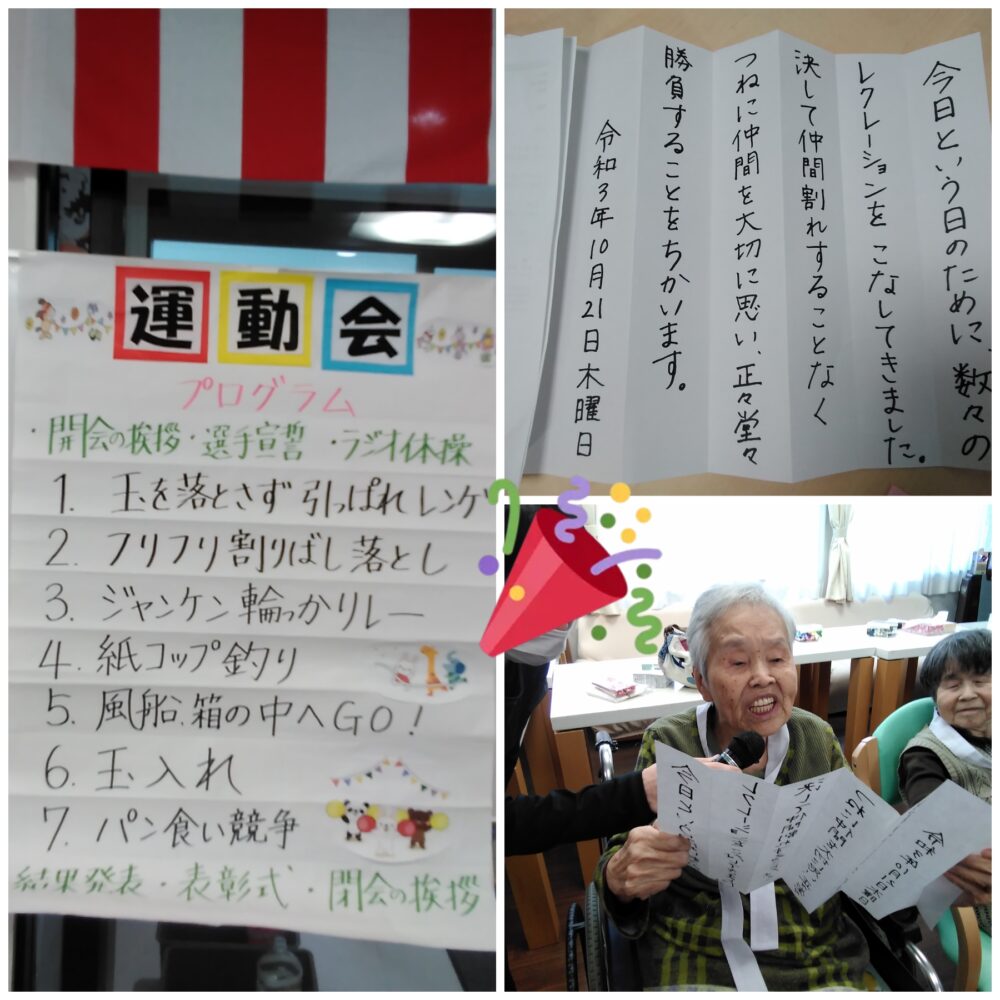 運動会
プログラム
・開会の挨拶・選手宣誓・ラジオ体操
1. 玉を落とさず引っぱれレンゲ
2. フリフリ割りばし落とし
3. ジャンケン輪っかリレー
4. 紙コップ釣り
5. 風船、箱の中へGO!
6. 玉入れ
7. パン食い競争
結果発表・表彰式・閉会の挨拶
今日という日のために、数々の
レクレーションをこなしてきました。
決して仲間割れすることなく
つねに仲間を大切に思い、正々堂々
勝負することをちかいます。
令和3年10月21日木曜日